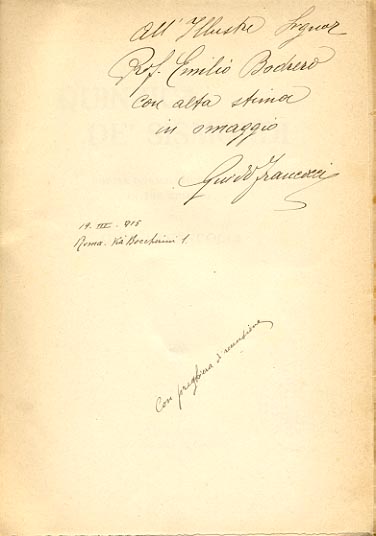 All' Illustre Signor
Prof. Emilio Bodrero
con alta stima
in omaggio
Guido Francocci
19. III. 915
Roma. Via Boccherini 1.
Con preghiera di recensione